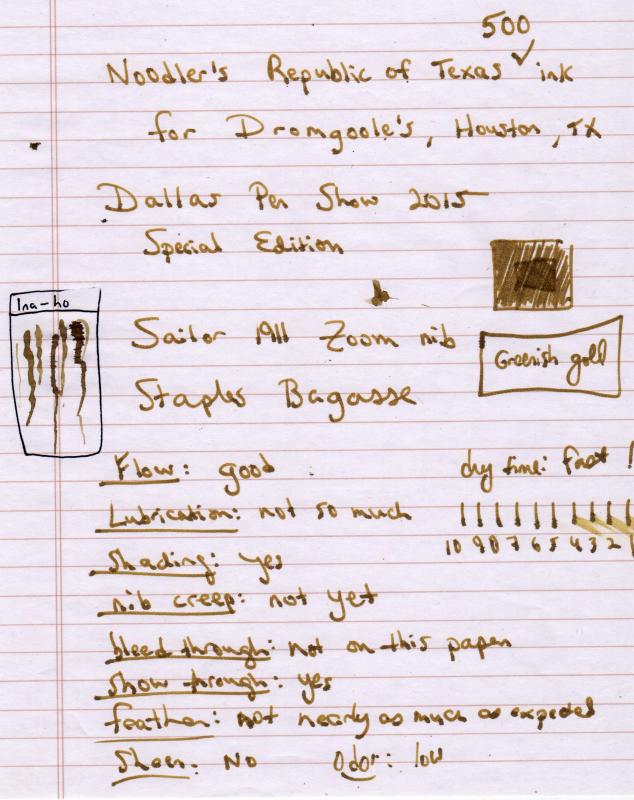 500
Noodler's Republic of Texas ✓ ink
for Dromgoole's, Houston, TX
Dallas Pen Show 2015
Special Edition
Ina-ho
Sailor 1911 Zoom nib
Greenish gold
Staples Bagasse
Flow: good
dry time: fast!
Lubrication: not so much
10 9 8 7 6 5 4 3 2 1
Shading: yes
nib creep: not yet
bleed through: not on this paper
Show through: yes
feather: not nearly as much as expected
Sheen: No Odor: low